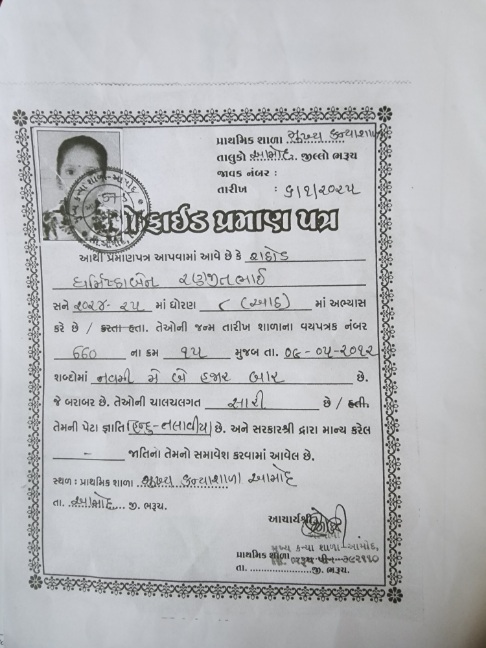 પ્રાથમિક શાળા મુખ્ય કન્યાશાળા
તાલુકો આમોદ. જીલ્લો ભરૂચ
જાવક નંબર :
તારીખ : ૬/૧/૨૦૨૫
બોનોફાઈડ પ્રમાણ પત્ર
આથી પ્રમાણપત્ર આપવામાં આવે છે કે રાઠોડ
ધર્મિષ્ઠાબેન રણજીતભાઈ
સને ૨૦૨૪-૨૫ માં ધોરણ ૮ (આઠ) માં અભ્યાસ
કરે છે / કરતા હતા. તેઓની જન્મ તારીખ શાળાના વયપત્રક નંબર
660 ના ક્રમ ૧૫ મુજબ તા. ૦૯-૦૫-૨૦૧૨
શબ્દોમાં નવમી મે બે હજાર બાર છે.
જે બરાબર છે. તેઓની ચાલચલગત સારી છે / હતી.
તેમની પેટા જ્ઞાતિ હિન્દુ-તલાવીયા છે. અને સરકારશ્રી દ્રારા માન્ય કરેલ
- જાતિનો તેમનો સમાવેશ કરવામાં આવેલ છે.
સ્થળ : પ્રાથમિક શાળા મુખ્ય કન્યાશાળા આમોદ
તા. આમોદ જી. ભરૂચ.
આચાર્યશ્રી
મુખ્ય કન્યા શાળા-આમોદ,
પ્રાથમિક શાળા
જી. ભરૂચ પીન-૩૯૨૧૧૦
તા. જી. ભરૂચ.